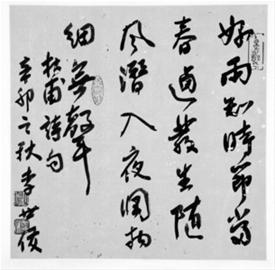 好雨知時節當
春迺發生隨
風潛入夜潤物
細無聲
杜甫詩句
辛卯之秋李世